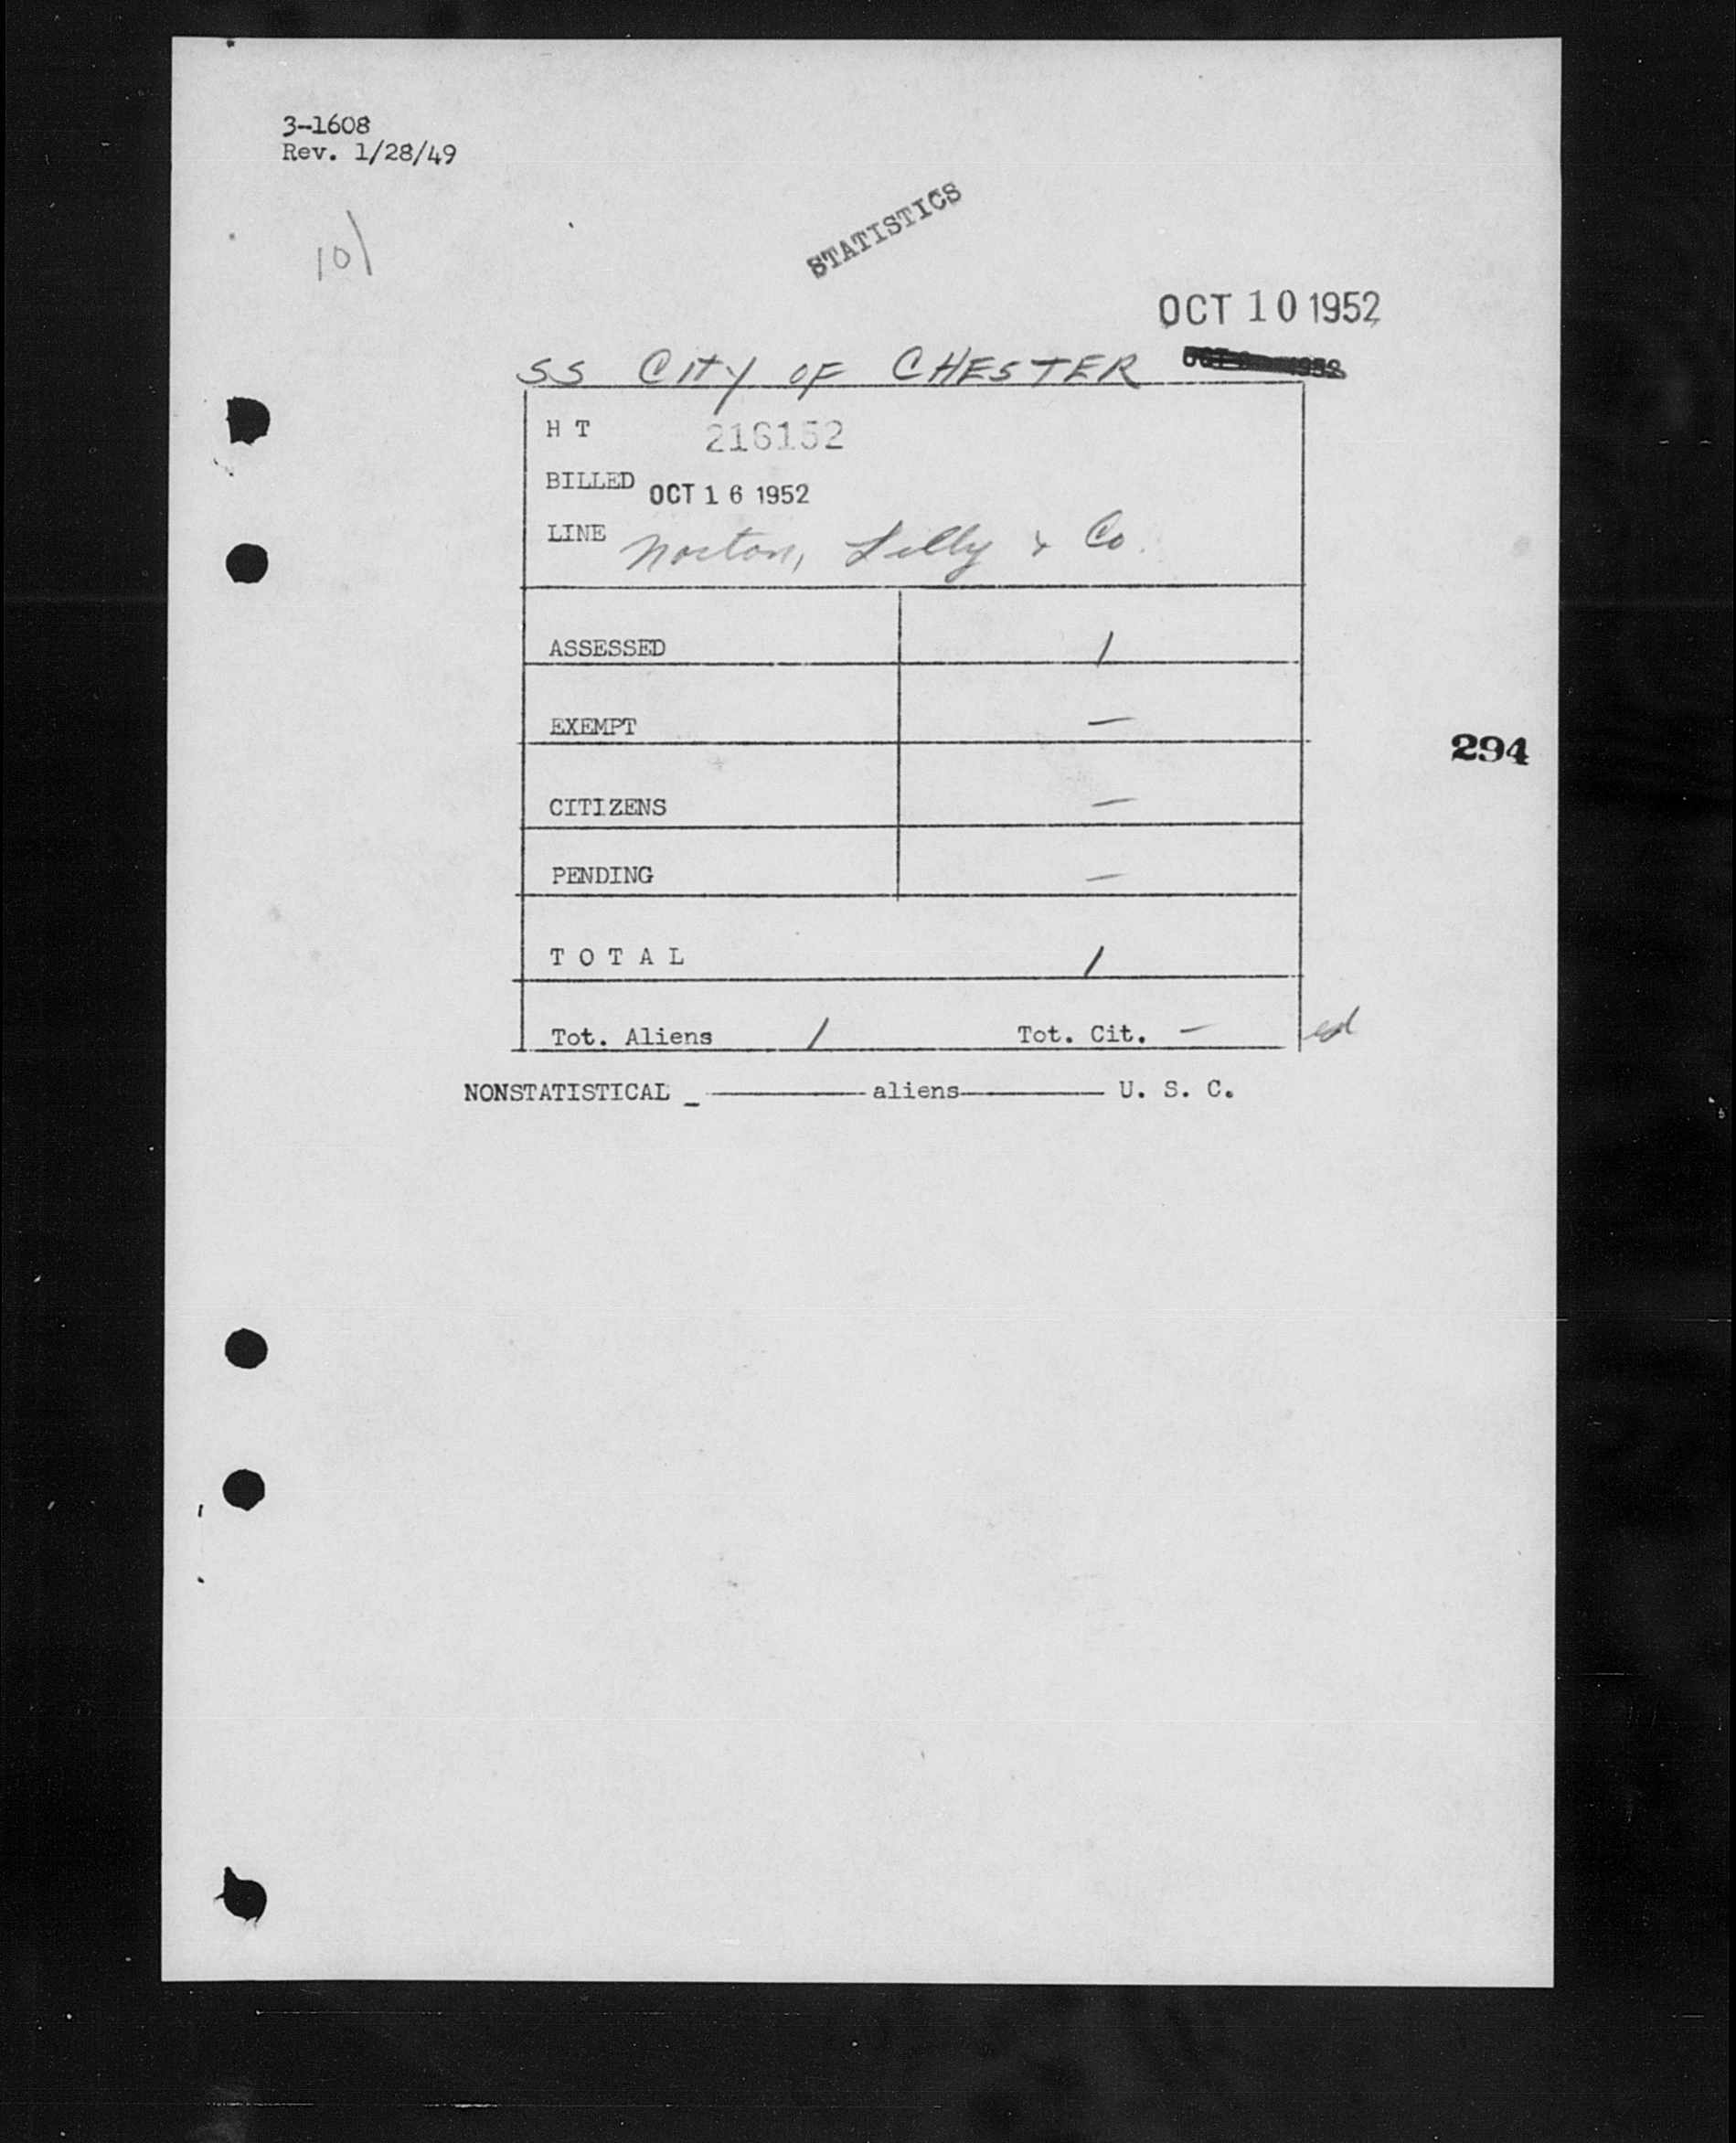 3-1608
Rev. 1/28/49
101
STATISTICS
OCT 10 1952
SS CITY OF CHESTER
H T 216152
BILLED OCT 16 1952
LINE Norton, Lilly & Co.
ASSESSED 1
EXEMPT —
294
CITIZENS —
PENDING —
T O T A L 1
Tot. Aliens 1 Tot. Cit. —
NONSTATISTICAL _ ———— aliens ———— U. S. C.